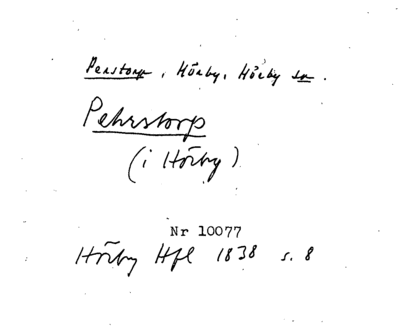 Perstorp, Hörby, Hörby sn.
Pehrstorp
(i Hörby)
Nr 10077
Hörby Hfl 1838 s. 8